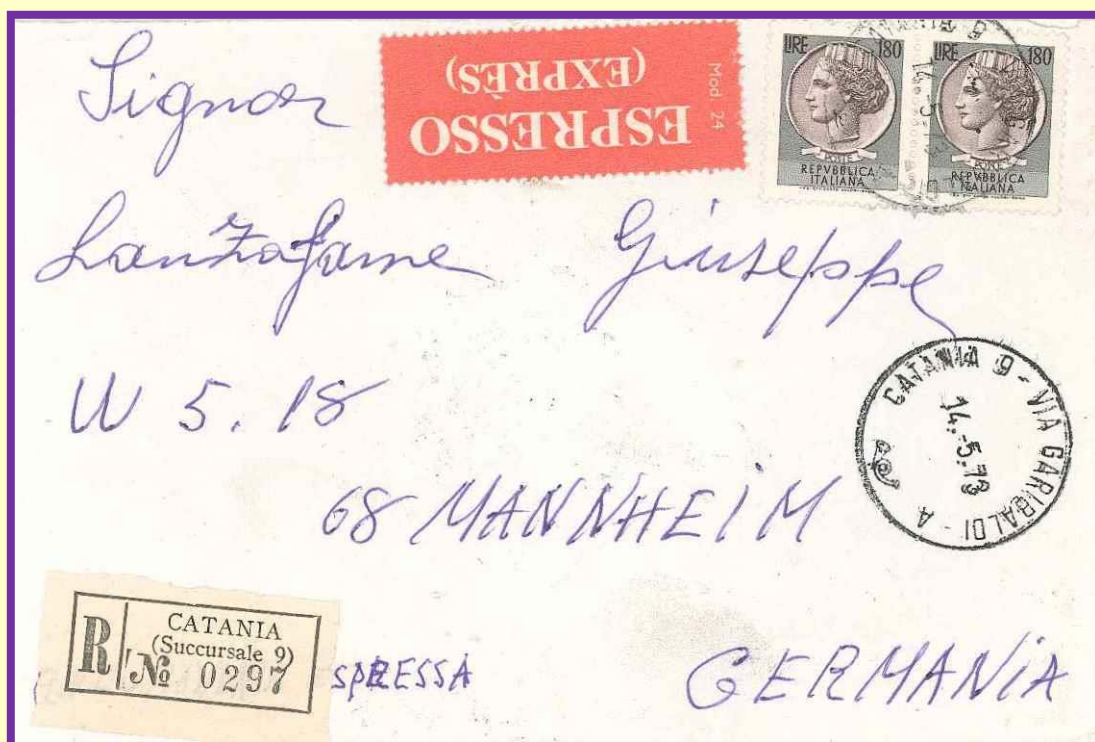 Signor
ESPRESSO
(EXPRÈS)
Mod. 24
LIRE 180
POSTE
REPVBBLICA
ITALIANA
LIRE 180
POSTE
REPVBBLICA
ITALIANA
Lanzafame Giuseppe
W 5. 18
CATANIA 9 - VIA GARIBALDI - A
14.-5.73
68 MANNHEIM
R
CATANIA
(Succursale 9)
No 0297
SPRESSA
GERMANIA